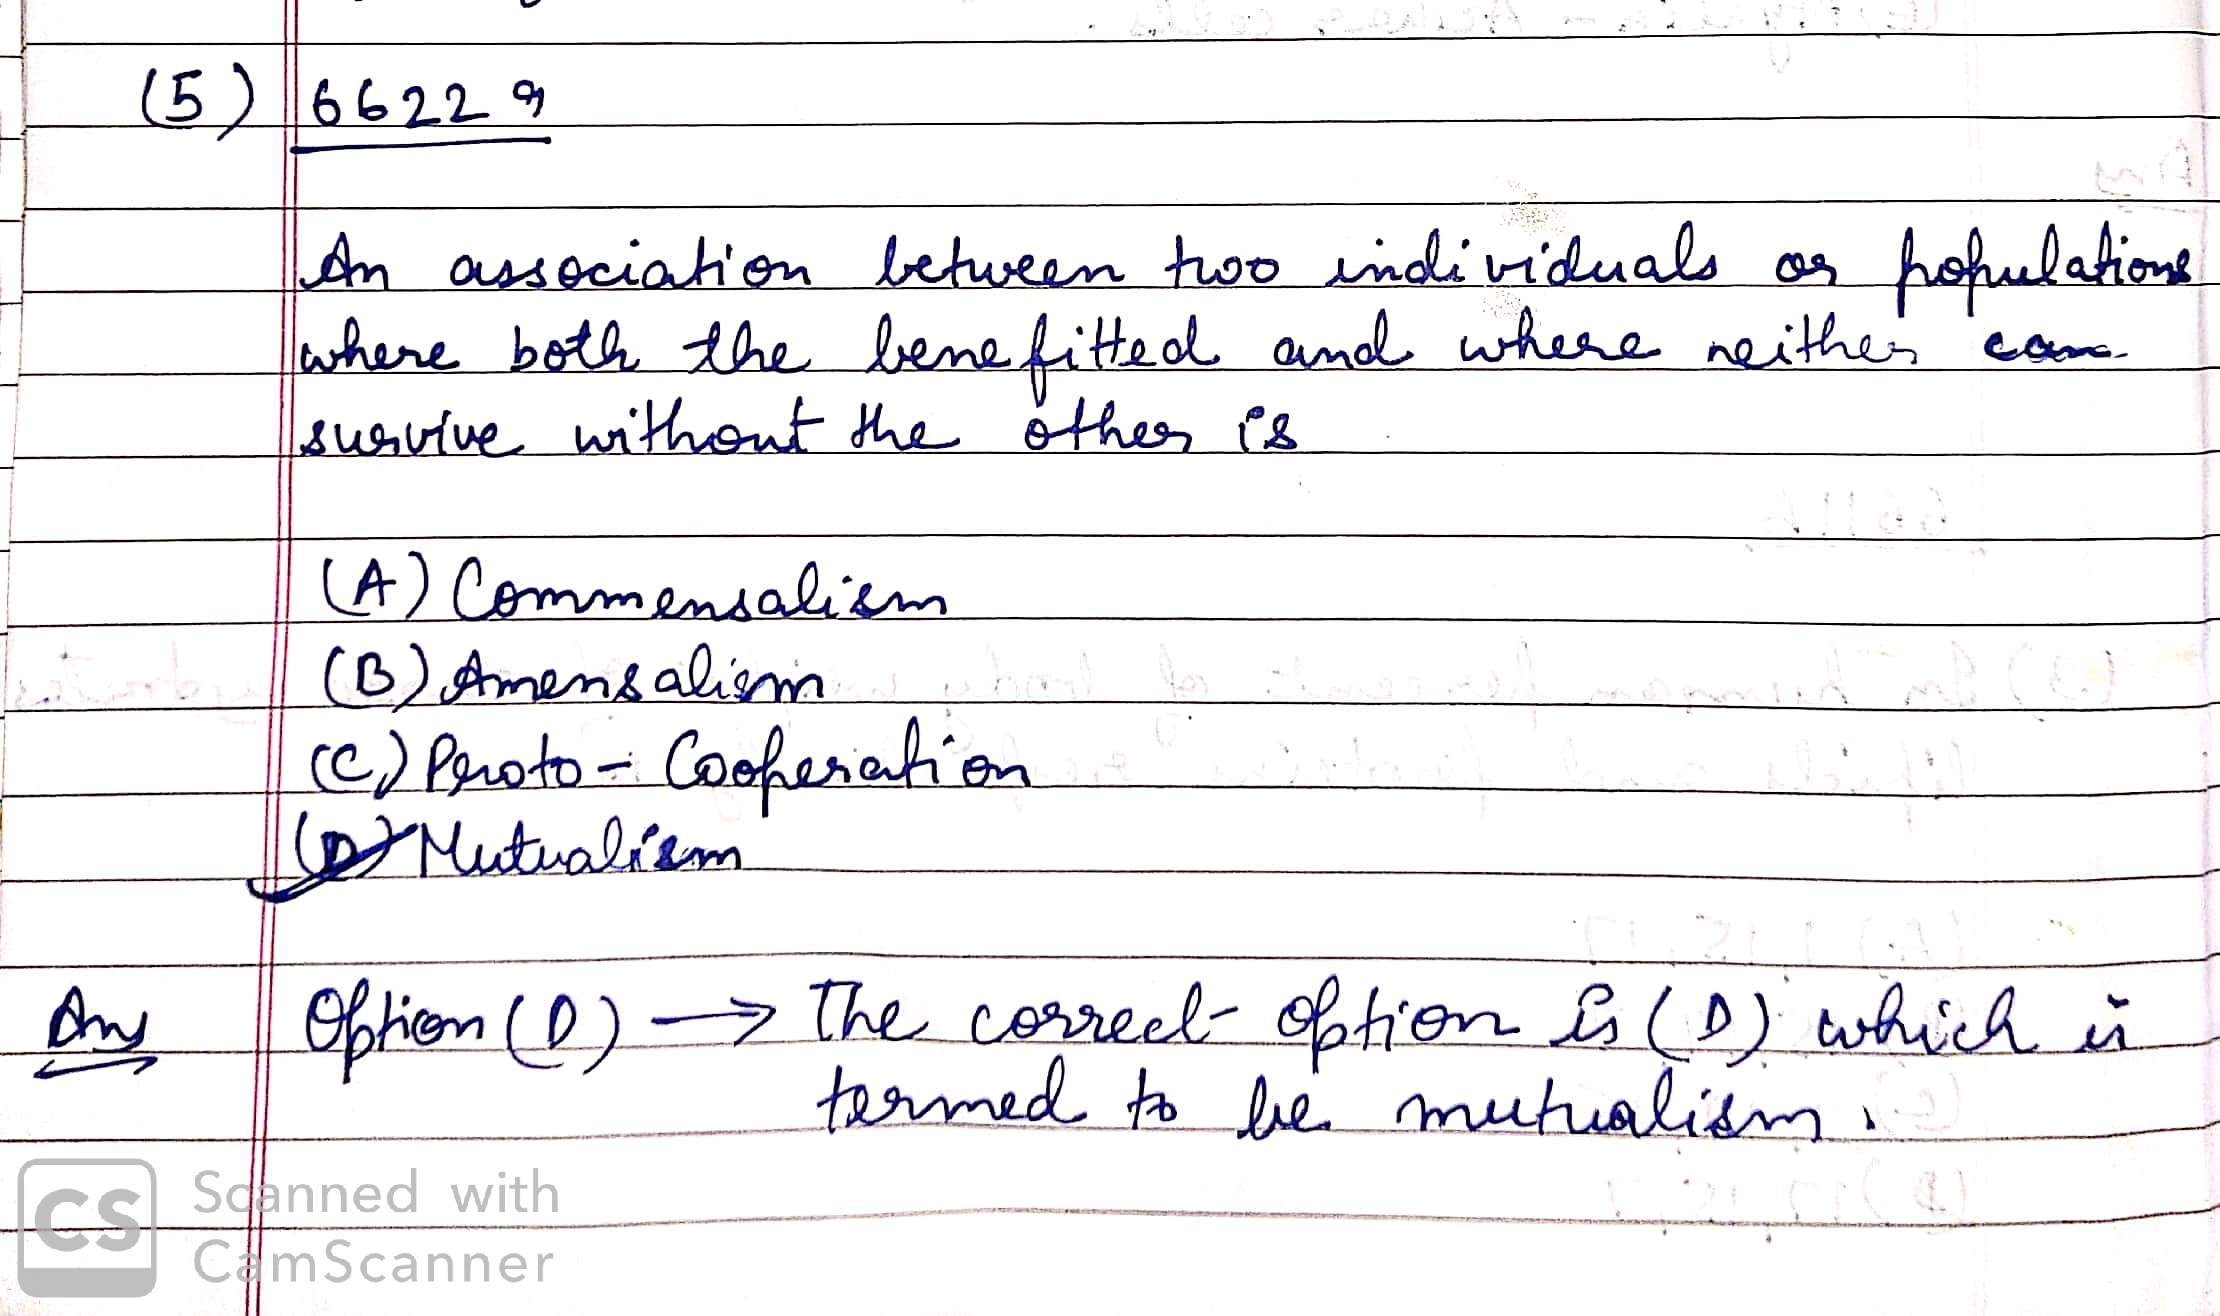 (5) 6622 9
An association between two individuals or populations
where both the benefitted and where neither can
survive without the other is
(A) Commensalism
(B) Amensalism
(C) Proto - Cooperation
(D) Mutualism
Ans Option (D) → The correct option is (D) which is
termed to be mutualism.
CS Scanned with
CamScanner